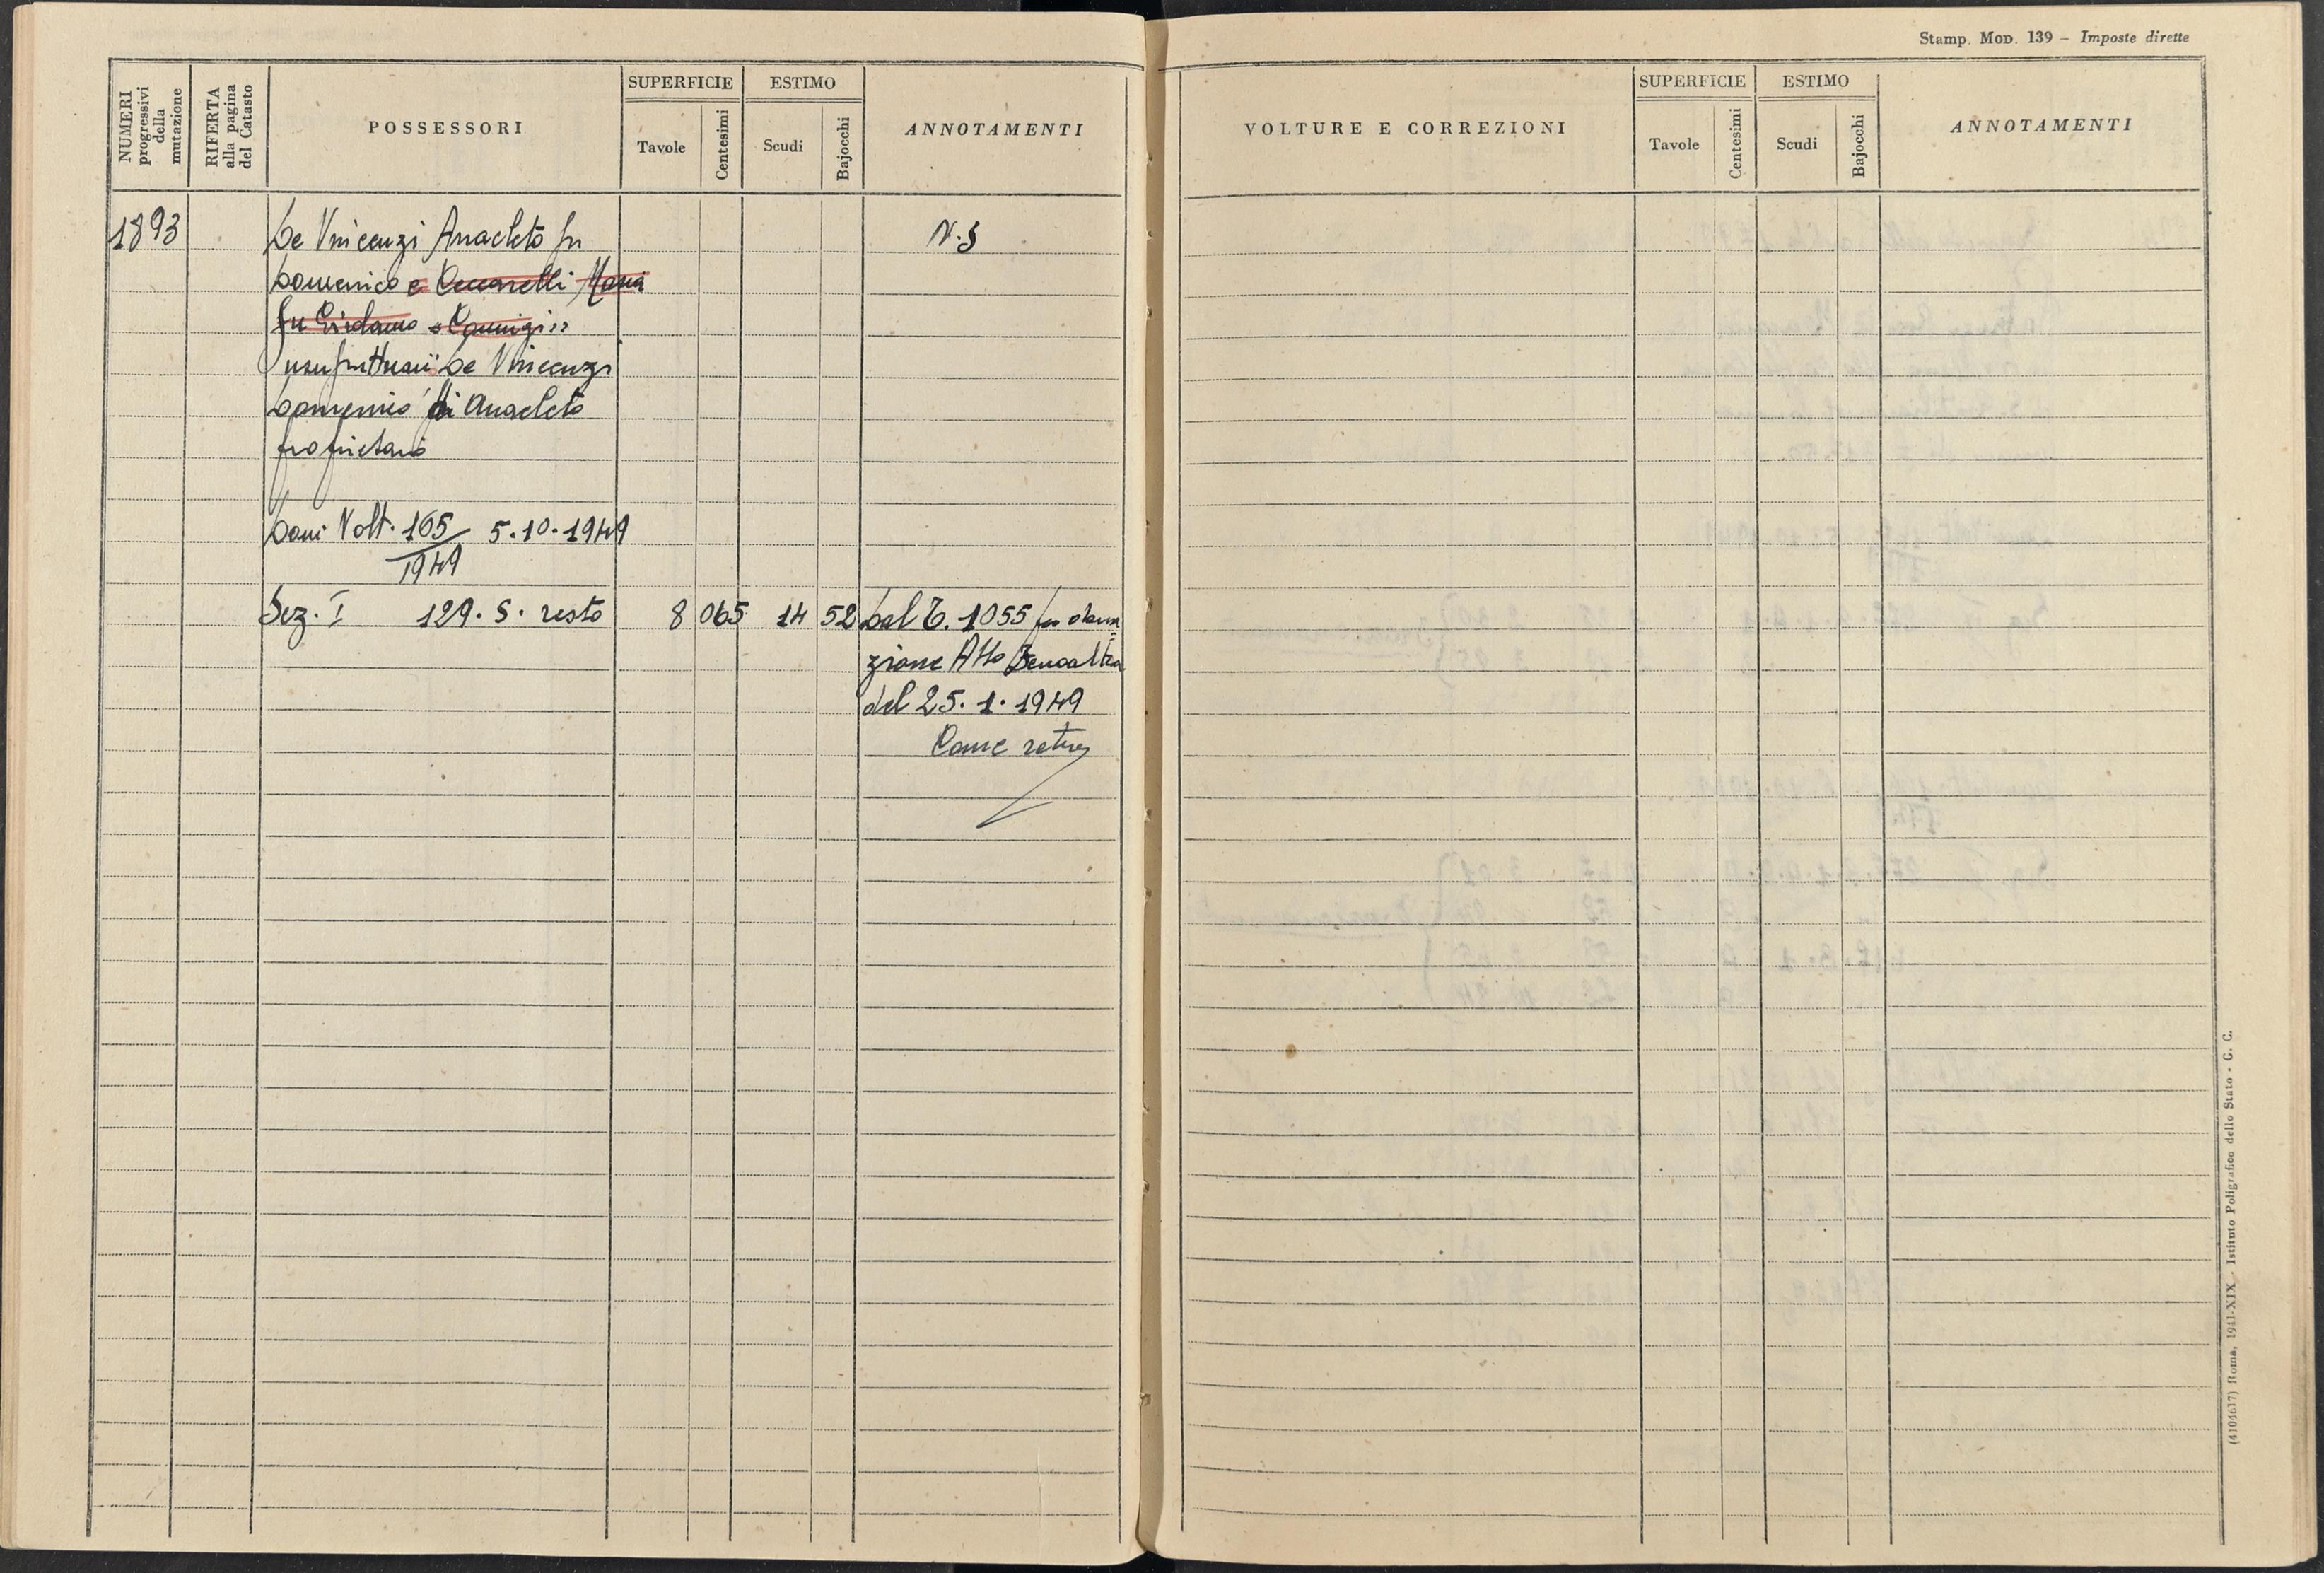 Stamp. Mod. 139 - Imposte dirette
NUMERI progressivi della mutazione
RIFERTA alla pagina del Catasto
POSSESSORI
SUPERFICIE
Tavole
Centesimi
ESTIMO
Scudi
Bajocchi
ANNOTAMENTI
VOLTURE E CORREZIONI
SUPERFICIE
Tavole
Centesimi
ESTIMO
Scudi
Bajocchi
ANNOTAMENTI
1893 De Vincenzi Anacleto fu N.S
Domenico e Ceccarelli Maria
fu Girolamo e Coniugi"
usufruttuari De Vincenzi
Domenico di Anacleto
proprietario
Dom Volt. 165/1949 5.10.1949
Sez. I 129. S. resto 8 065 14 52 Dal T. 1055 per dona
zione Atto
del 25.1.1949
Come retro
(4104617) Roma, 1941-XIX - Istituto Poligrafico dello Stato - G. C.